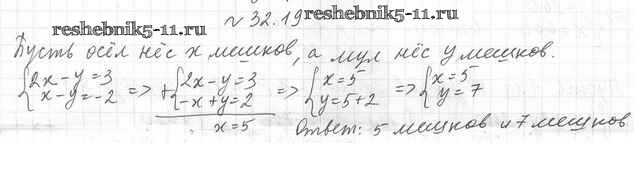 № 32.19 reshebnik5-11.ru
reshebnik5-11.ru
Пусть осёл нёс x мешков, а мул нёс y мешков.
{2x-y=3 => +{2x-y=3 => {x=5 => {x=5
x-y=-2 -x+y=2 y=5+2 y=7
x=5 Ответ: 5 мешков и 7 мешков